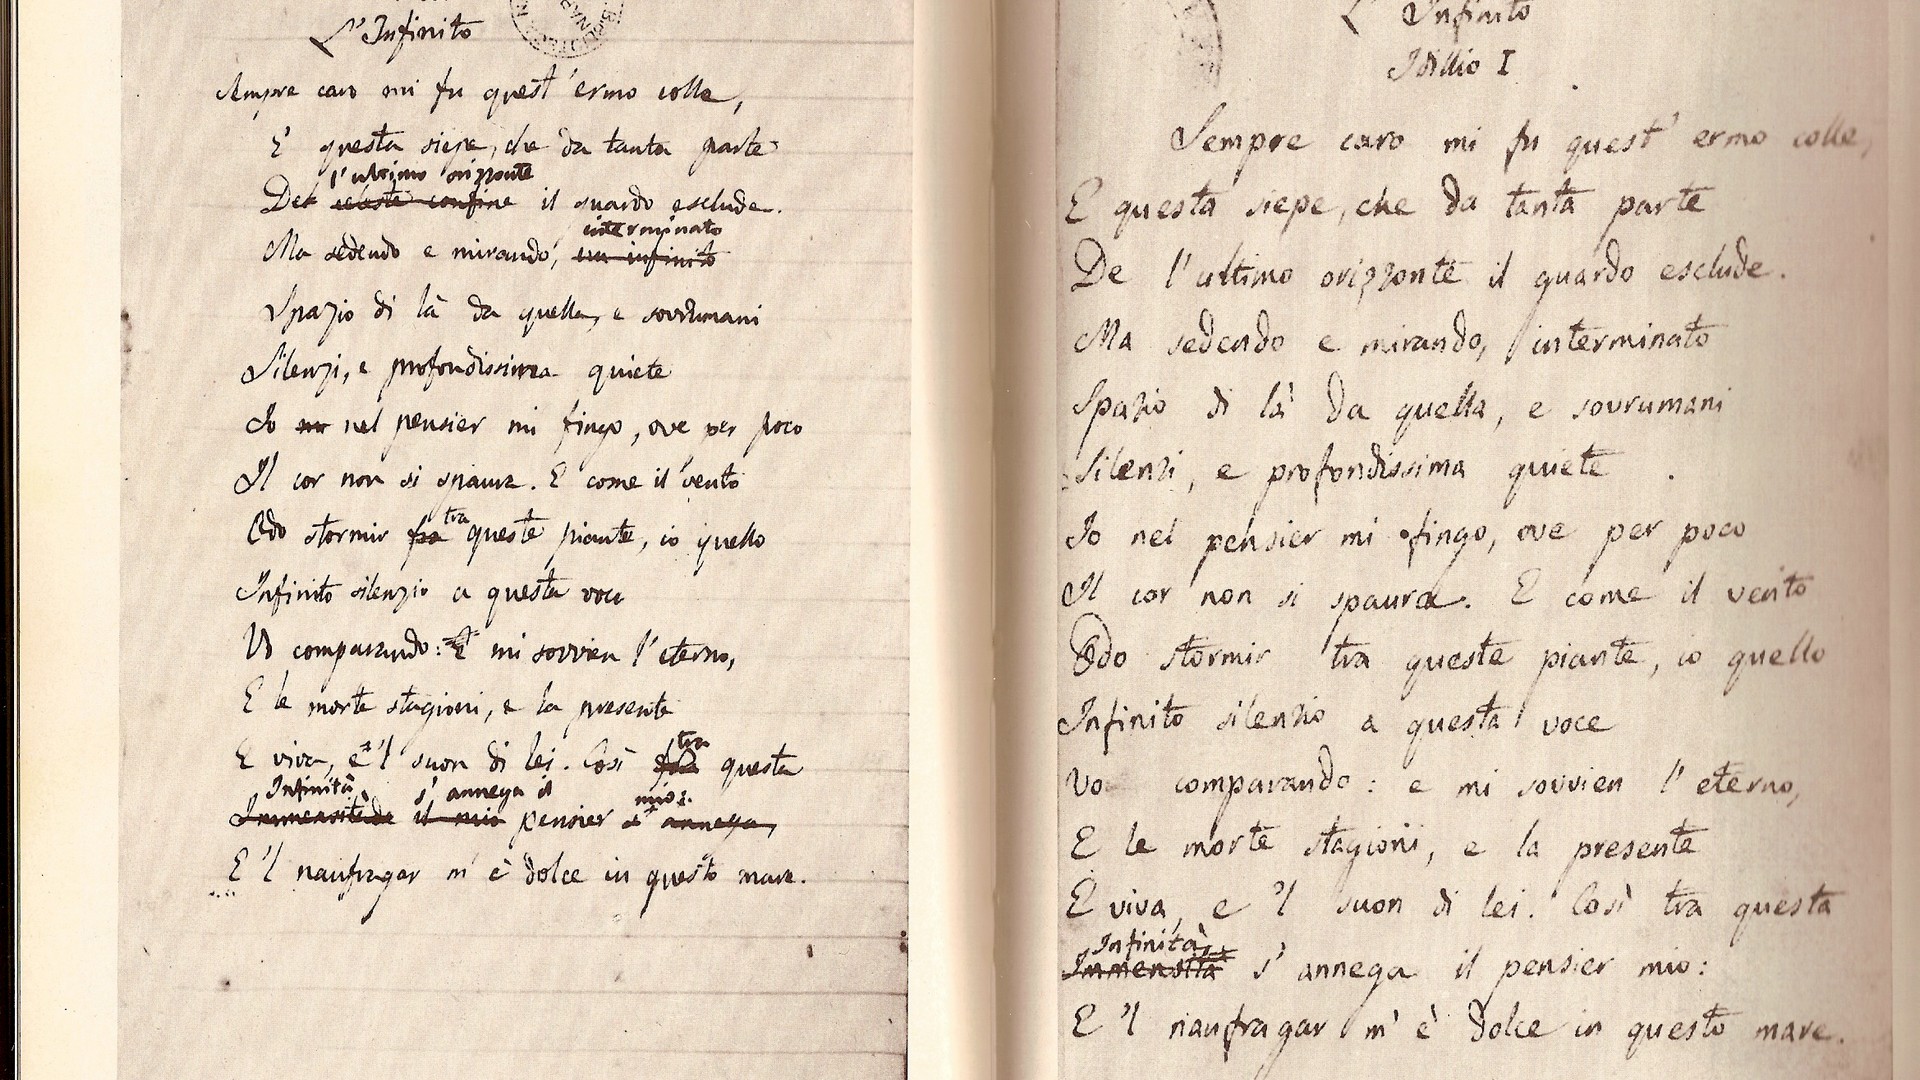 L'Infinito
Sempre caro mi fu quest'ermo colle,
E questa siepe, che da tanta parte
l'ultimo orizzonte
Del celeste confine il guardo esclude.
interminato
Ma sedendo e mirando, un infinito
Spazio di là da quella, e sovrumani
Silenzi, e profondissima quiete
Io nel pensier mi fingo, ove per poco
Il cor non si spaura. E come il vento
tra
Odo stormir fra queste piante, io quello
Infinito silenzio a questa voce
Vo comparando: E mi sovvien l'eterno,
E le morte stagioni, e la presente
tra
E viva, e 'l suon di lei. Così fra questa
Infinità s' annega il mio:
Immensità il mio pensier s' annega,
E 'l naufragar m' è dolce in questo mare.
L'Infinito
Idillio I
Sempre caro mi fu quest' ermo colle,
E questa siepe, che da tanta parte
De l'ultimo orizzonte il guardo esclude.
Ma sedendo e mirando, interminato
Spazio di là da quella, e sovrumani
Silenzi, e profondissima quiete
Io nel pensier mi fingo, ove per poco
Il cor non si spaura. E come il vento
Odo stormir tra queste piante, io quello
Infinito silenzio a questa voce
Vo comparando: e mi sovvien l' eterno,
E le morte stagioni, e la presente
E viva, e 'l suon di lei. Così tra questa
Infinità
Immensità s' annega il pensier mio:
E 'l naufragar m' è dolce in questo mare.